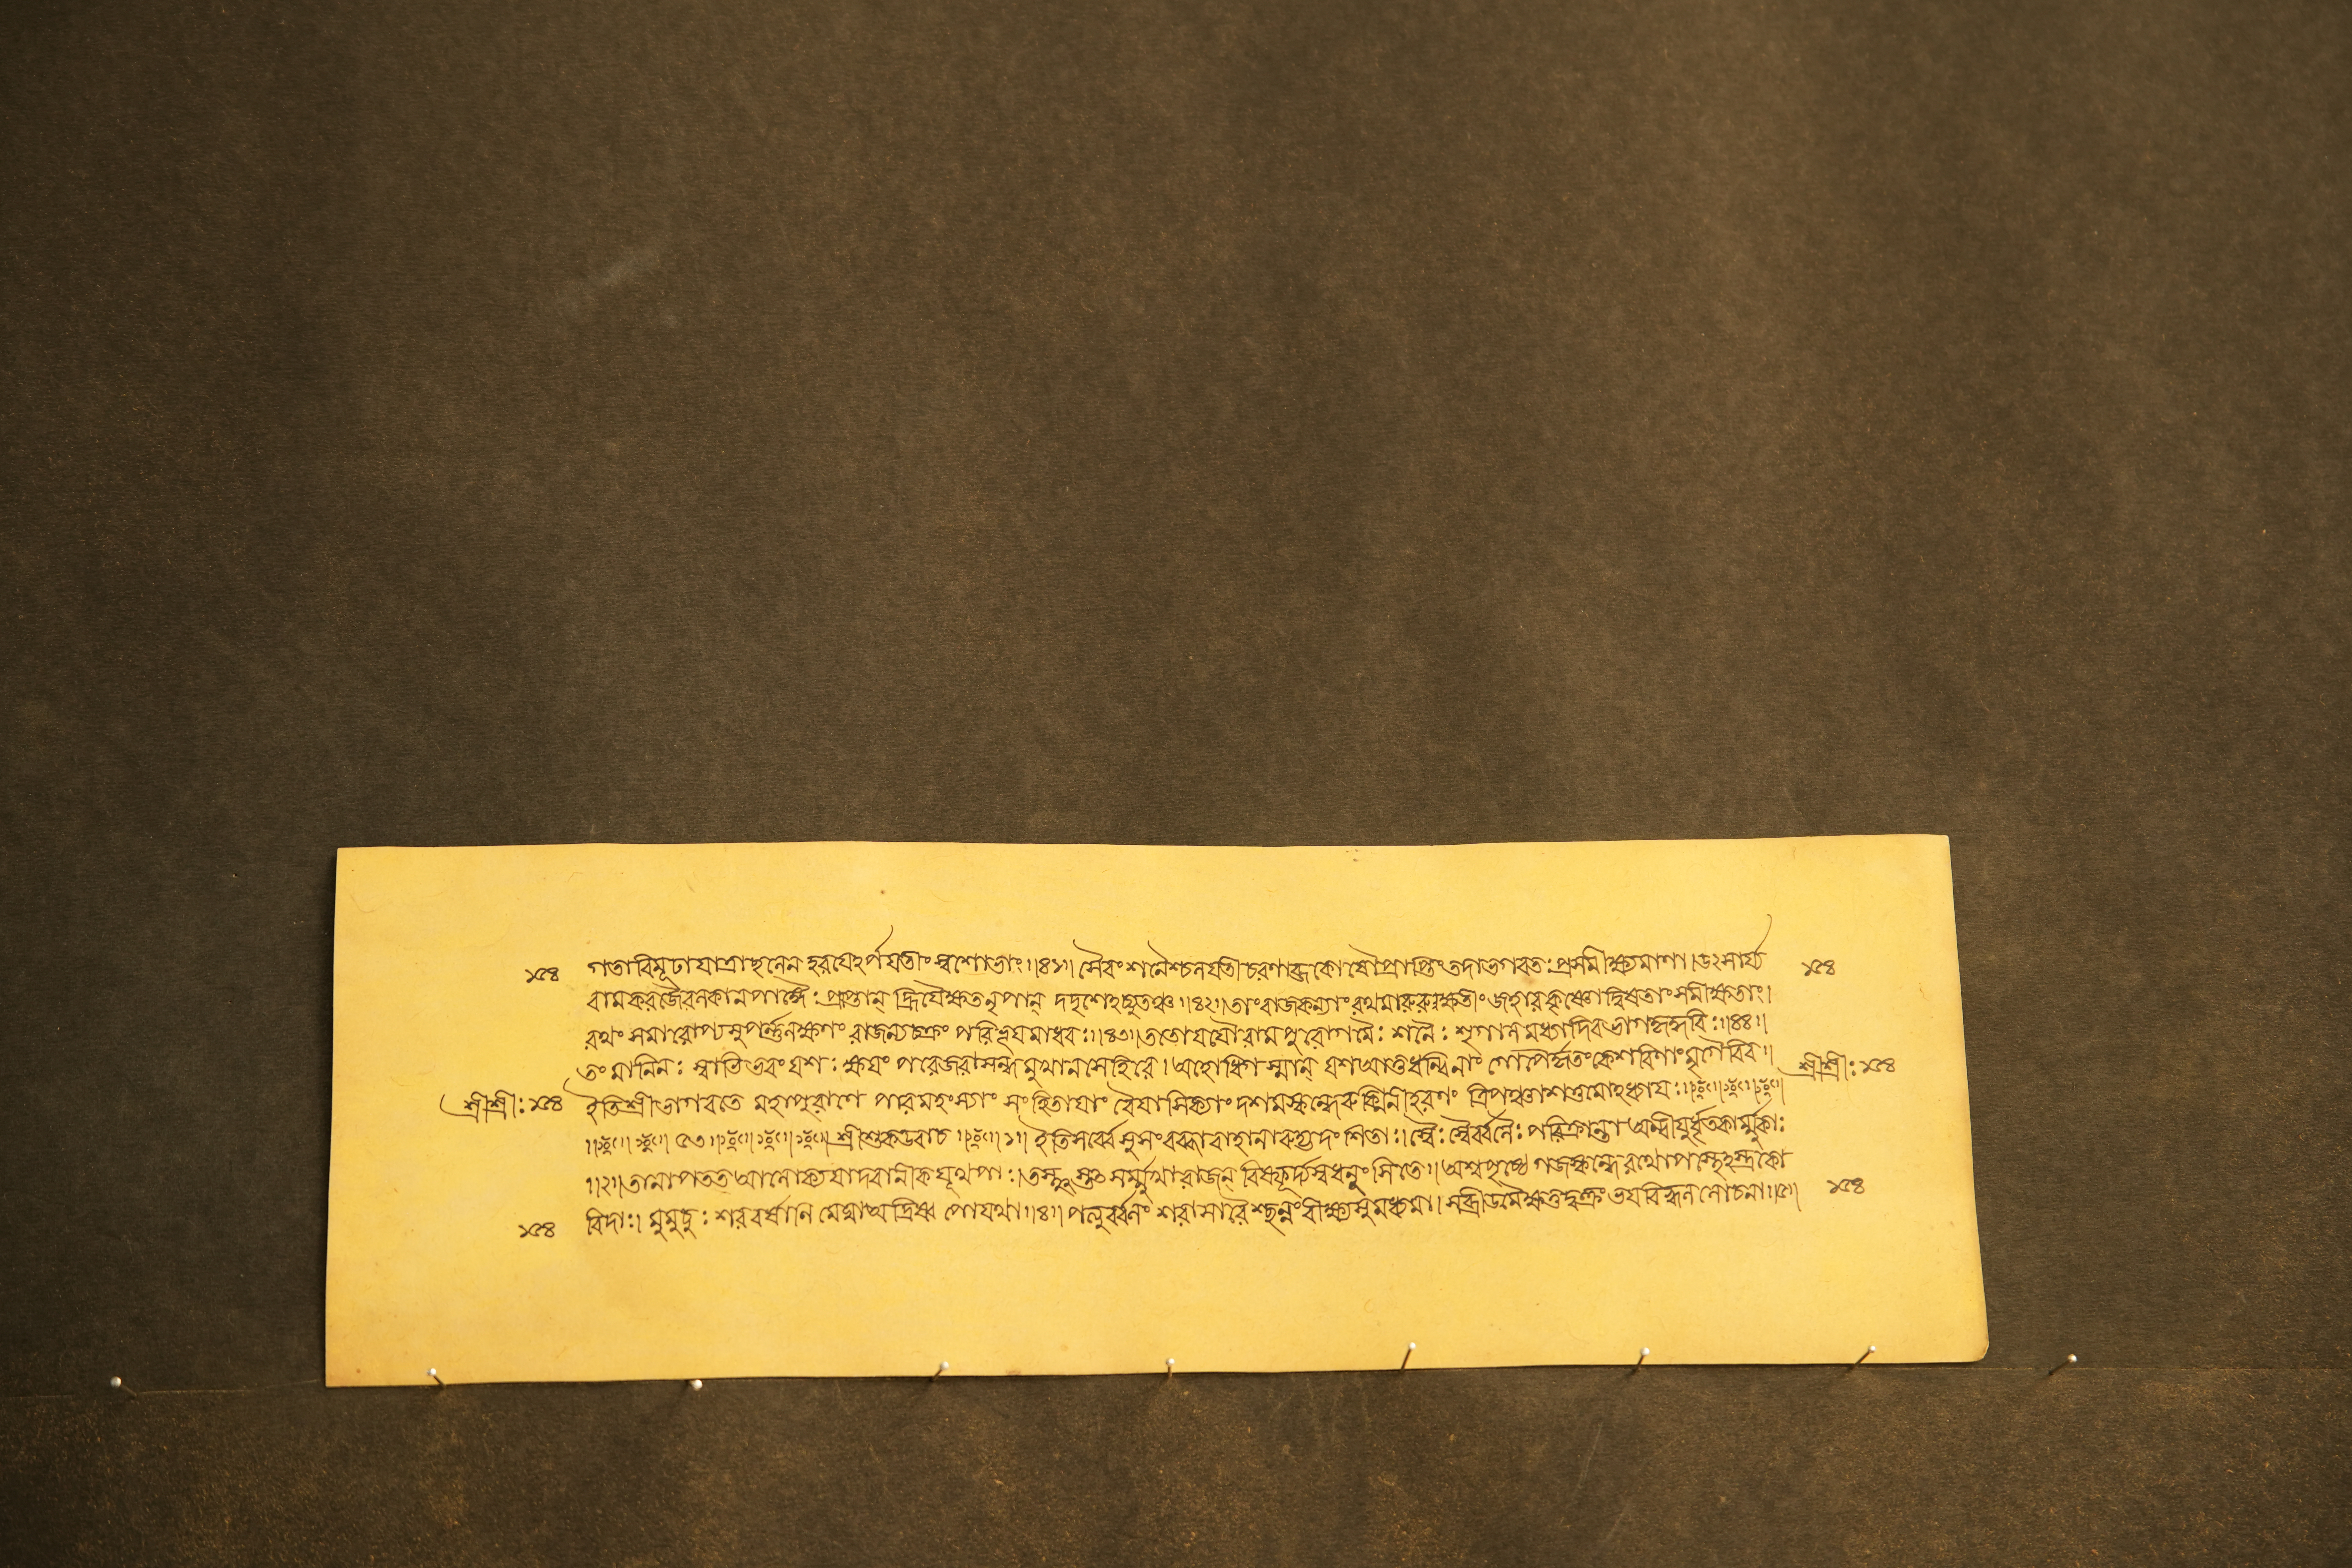 ১৫৪ গতাবিমূঢাযাত্রাছলেন হরযেঽর্পযতীং স্বশোভাং॥৪১॥ সৈবং শনৈশ্চলযতীচরণাব্জকোষৌপ্রাপ্তিং তদাভগবতঃপ্রসমীক্ষ্যমাণা।উৎসার্য্য ১৫৪
বামকরজৈরলকানপাঙ্গৈঃ প্রাপ্তান্ হ্রিযৈক্ষতনৃপান্ দদৃশেঽচ্যুতঞ্চ॥৪২॥তাংরাজকন্যাংরথমারুরুক্ষতীং জহারকৃষ্ণোদ্বিষতাংসমীক্ষতাং।
রথং সমারোপ্যসুপর্ণলক্ষণং রাজন্যচক্রং পরিভূযমাধবঃ॥৪৩॥ততোযযৌরামপুরোগমৈঃ শনৈঃ শৃগালমধ্যাদিবভাগহৃদ্ধবিঃ॥৪৪॥
তং মানিনঃ স্বাভিভবং যশঃ ক্ষযং পরেজরাসন্ধমুখানসেহিরে।অহোধিগস্মান্ যশআত্তধন্বিনাং গোপৈর্হৃতংকেশরিণাংমৃগৈরিব॥ শ্রীশ্রীঃ ১৫৪
শ্রীশ্রীঃ ১৫৪ ইতিশ্রীভাগবতে মহাপুরাণে পারমহংস্যাং সংহিতাযাং বৈযাসিক্যাং দশমস্কন্ধেরুক্মিনীহরণং ত্রিপঞ্চাশত্তমোঽধ্যাযঃ॥
৫৩॥ শ্রীশুকউবাচ ॥১॥ ইতিসর্ব্বেসুসংরব্ধাবাহানারুহ্যদংশিতাঃ।স্বৈঃ স্বৈর্ব্বলৈঃ পরিক্রান্তা অন্বীযুর্ধৃতকার্ম্মুকাঃ
॥২॥তানাপতত আলোক্যযাদবানীকযূথপাঃ।তস্থুস্তৎ সম্মুখারাজন্ বিস্ফূর্জ্যস্বধনুংসিতে॥অশ্বপৃষ্ঠে গজস্কন্ধেরথোপস্থেঽস্ত্রকো
১৫৪ বিদাঃ। মুমুচুঃ শরবর্ষানি মেঘাঅদ্রিষ্ব পোযথা॥৪॥ পত্যুর্ব্বলং শরাসারৈশ্ছন্নংবীক্ষ্যসুমধ্যমা। সব্রীডমৈক্ষত্তদ্বক্ত্রং ভযবিহ্বললোচনা॥৫॥ ১৫৪